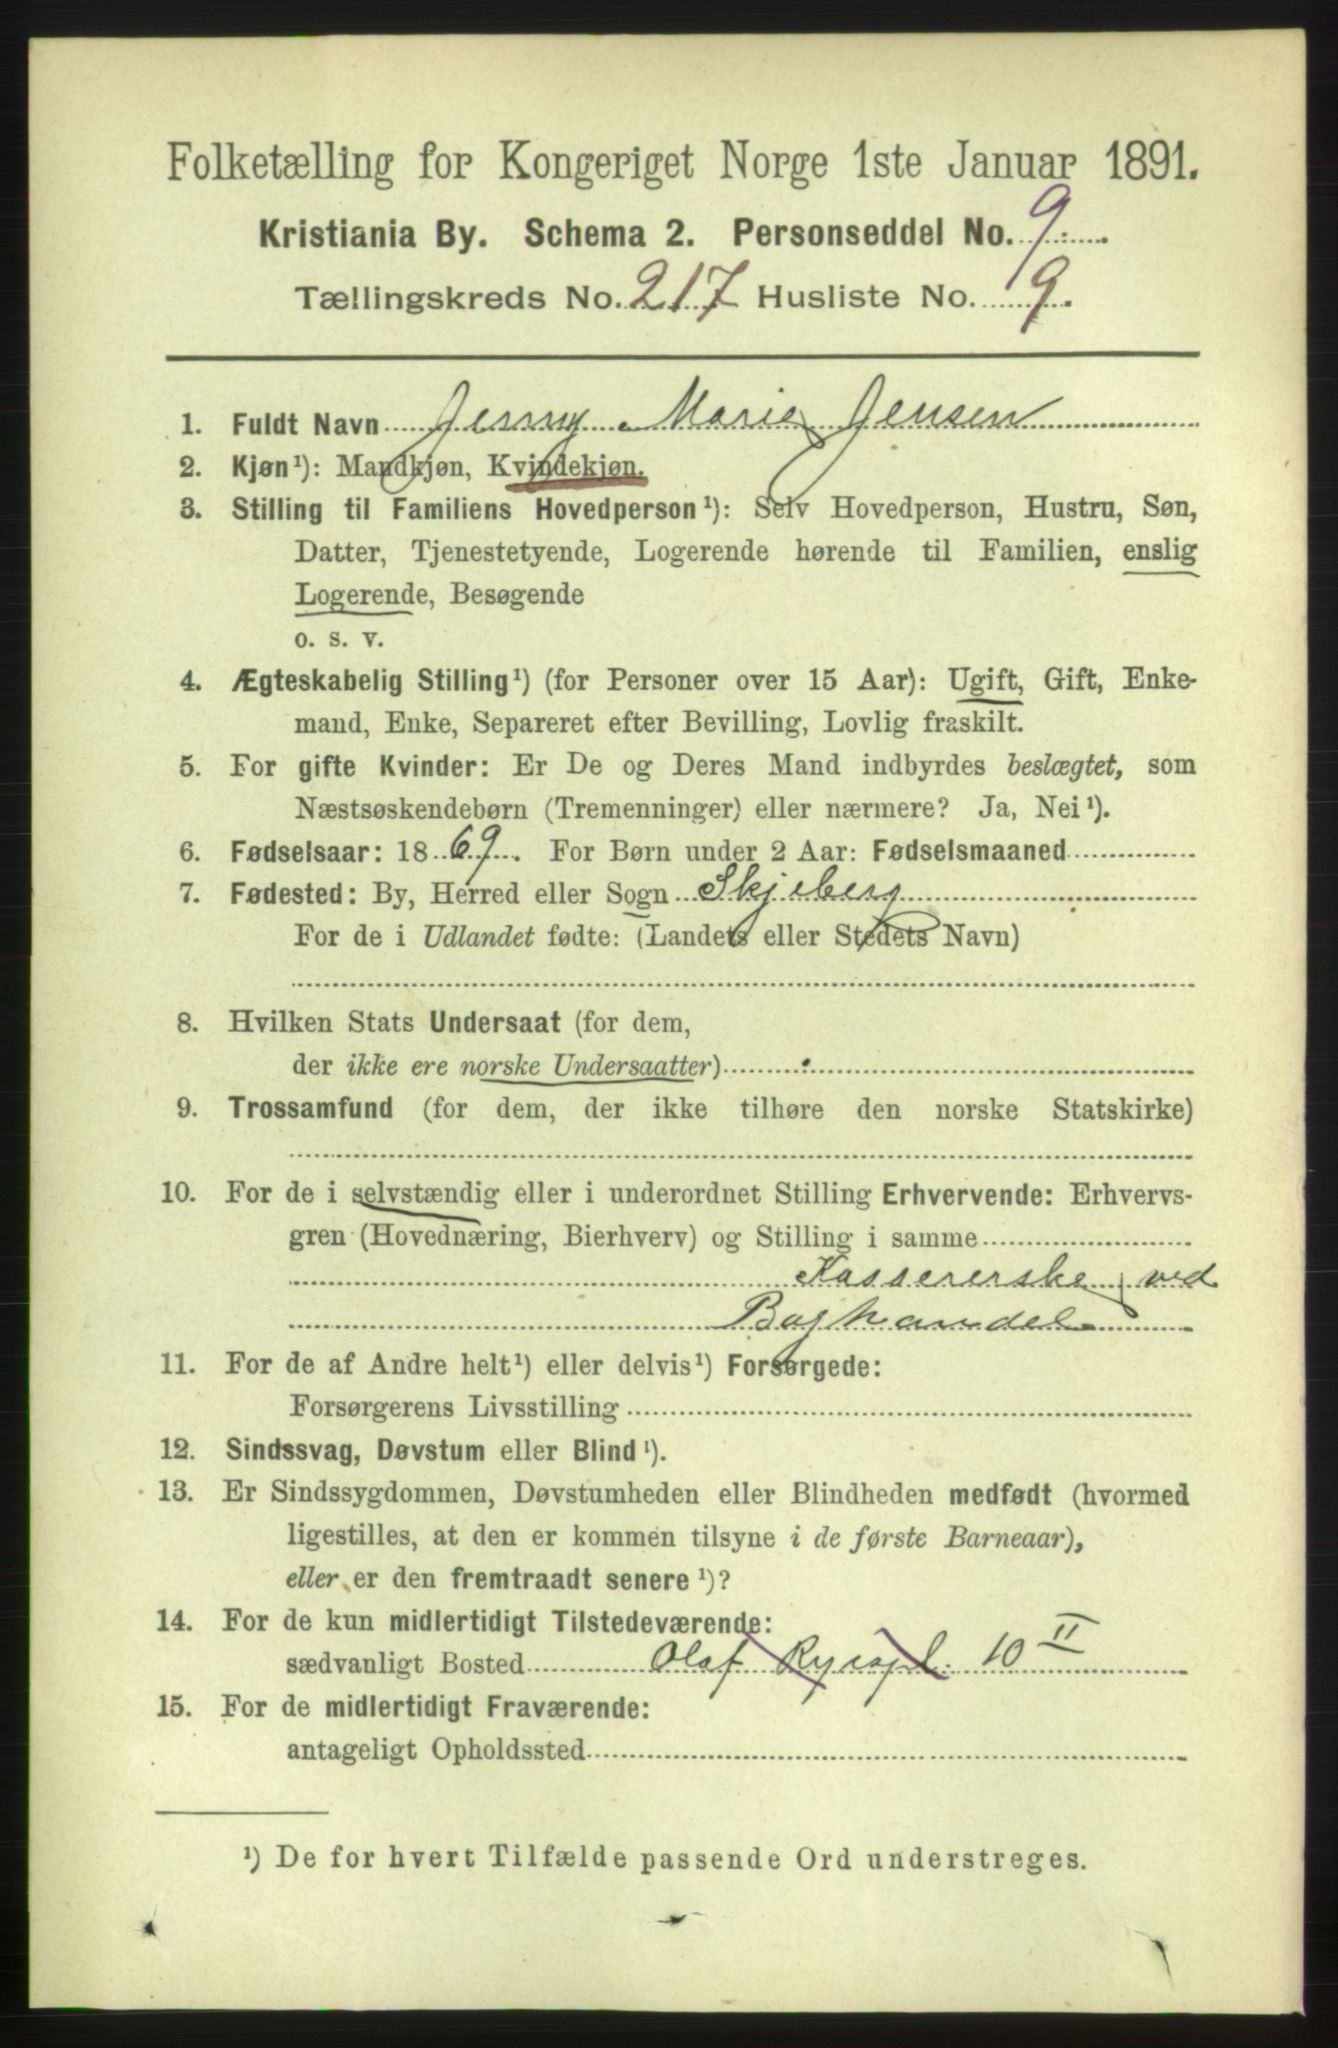 Folketælling for Kongeriget Norge 1ste Januar 1891.
Kristiania By. Schema 2. Personseddel No. 9.
Tællingskreds No. 217 Husliste No. 9.
1. Fuldt Navn Jenny Marie Jensen
2. Kjøn¹): Mandkjøn, Kvindekjøn.
3. Stilling til Familiens Hovedperson¹): Selv Hovedperson, Hustru, Søn,
Datter, Tjenestetyende, Logerende hørende til Familien, enslig
Logerende, Besøgende
o. s. v.
4. Ægteskabelig Stilling¹) (for Personer over 15 Aar): Ugift, Gift, Enke-
mand, Enke, Separeret efter Bevilling, Lovlig fraskilt.
5. For gifte Kvinder: Er De og Deres Mand indbyrdes beslægtet, som
Næstsøskendebørn (Tremenninger) eller nærmere? Ja, Nei¹).
6. Fødselsaar: 1869. For Børn under 2 Aar: Fødselsmaaned
7. Fødested: By, Herred eller Sogn Skjeberg
For de i Udlandet fødte: (Landets eller Stedets Navn)
8. Hvilken Stats Undersaat (for dem,
der ikke ere norske Undersaatter)
9. Trossamfund (for dem, der ikke tilhøre den norske Statskirke)
10. For de i selvstændig eller i underordnet Stilling Erhvervende: Erhvervs-
gren (Hovednæring, Bierhverv) og Stilling i samme
Kassererske ved
Boghandel
11. For de af Andre helt¹) eller delvis¹) Forsørgede:
Forsørgerens Livsstilling
12. Sindssvag, Døvstum eller Blind¹).
13. Er Sindssygdommen, Døvstumheden eller Blindheden medfødt (hvormed
ligestilles, at den er kommen tilsyne i de første Barneaar),
eller er den fremtraadt senere¹)?
14. For de kun midlertidigt Tilstedeværende:
sædvanligt Bosted Olaf Ryespl. 10 II
15. For de midlertidigt Fraværende:
antageligt Opholdssted
¹) De for hvert Tilfælde passende Ord understreges.